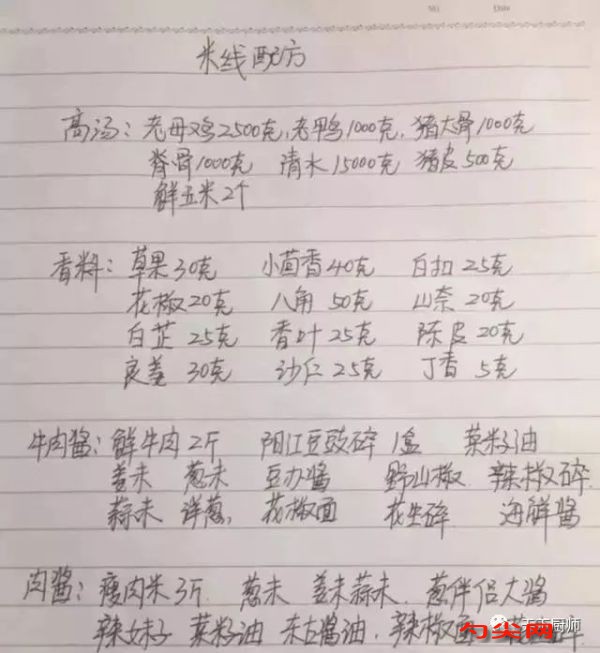 No
Date
米线配方
高汤：老母鸡2500克，老鸭1000克，猪大骨1000克
脊骨1000克 清水15000克 猪皮500克
鲜玉米2个
香料：草果30克 小茴香40克 白扣25克
花椒20克 八角50克 山奈20克
白芷25克 香叶25克 陈皮20克
良姜30克 沙仁25克 丁香5克
牛肉酱：鲜牛肉2斤 阳江豆豉碎1盒 菜籽油
姜末 葱末 豆办酱 野山椒 辣椒碎
蒜末 洋葱， 花椒面 花生碎 海鲜酱
肉酱：瘦肉米3斤 葱末 姜末蒜末， 葱伴侣大酱
辣妹子 菜籽油 东古酱油，辣椒面
勺尖网
天天厨师